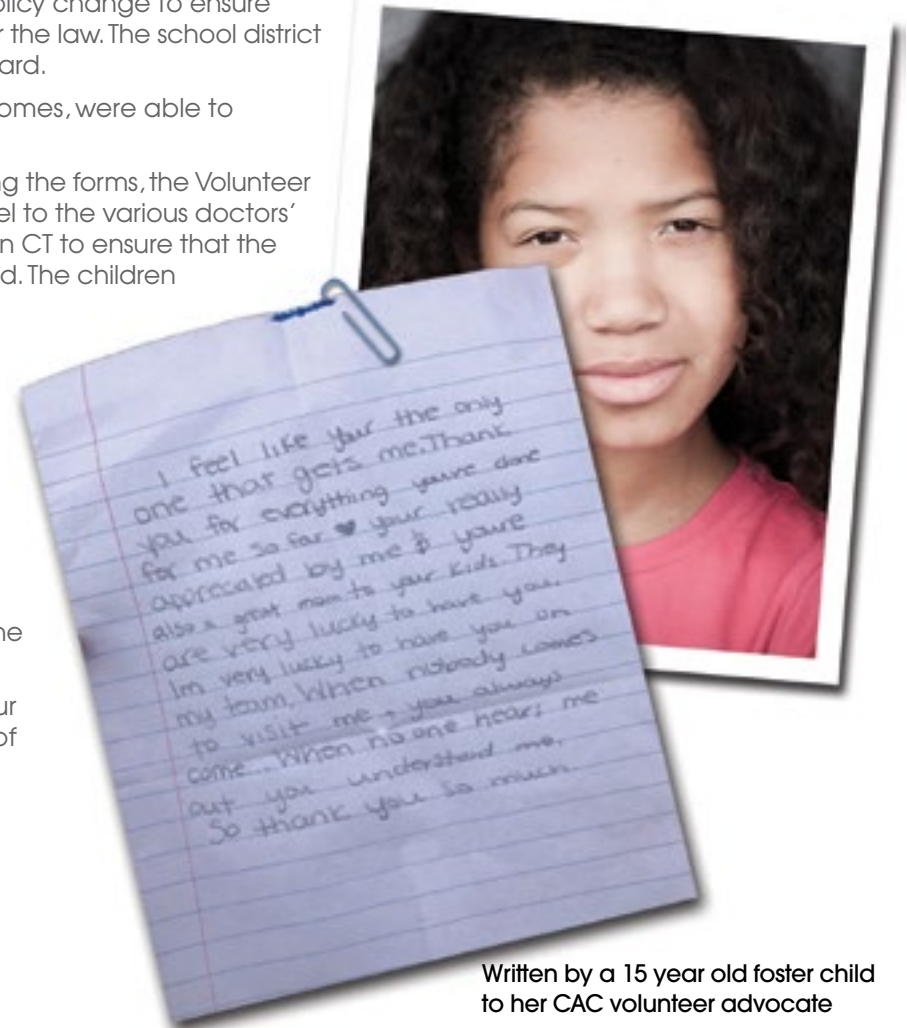 olicy change to ensure
r the law. The school district
ard.
omes, were able to
ng the forms, the Volunteer
el to the various doctors’
n CT to ensure that the
d. The children
ne
ur
of
I feel like your the only
one that gets me. Thank
you for everything youve done
for me so far ♥ your really
appreciated by me & youre
also a great mom to your kids. They
are very lucky to have you.
Im very lucky to have you on
my team. When nobody comes
to visit me - you always
come... When no one hears me
out you understand me.
So thank you so much.
Written by a 15 year old foster child
to her CAC volunteer advocate